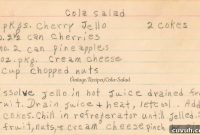 Cola Salad
pkgs. Cherry Jello 2 Cokes
no. 2½ can Cherries
no. 2 can pineapples
oz. pkg. Cream cheese
Cup chopped nuts
Vintage Recipes/Cola-Salad
ssolve jello in hot juice drained from
uit. Drain juice & heat, let cool. Add
Cokes. Chill in refrigerator until jelled.
fruit, nuts, & cream cheese
cuivuh.ce